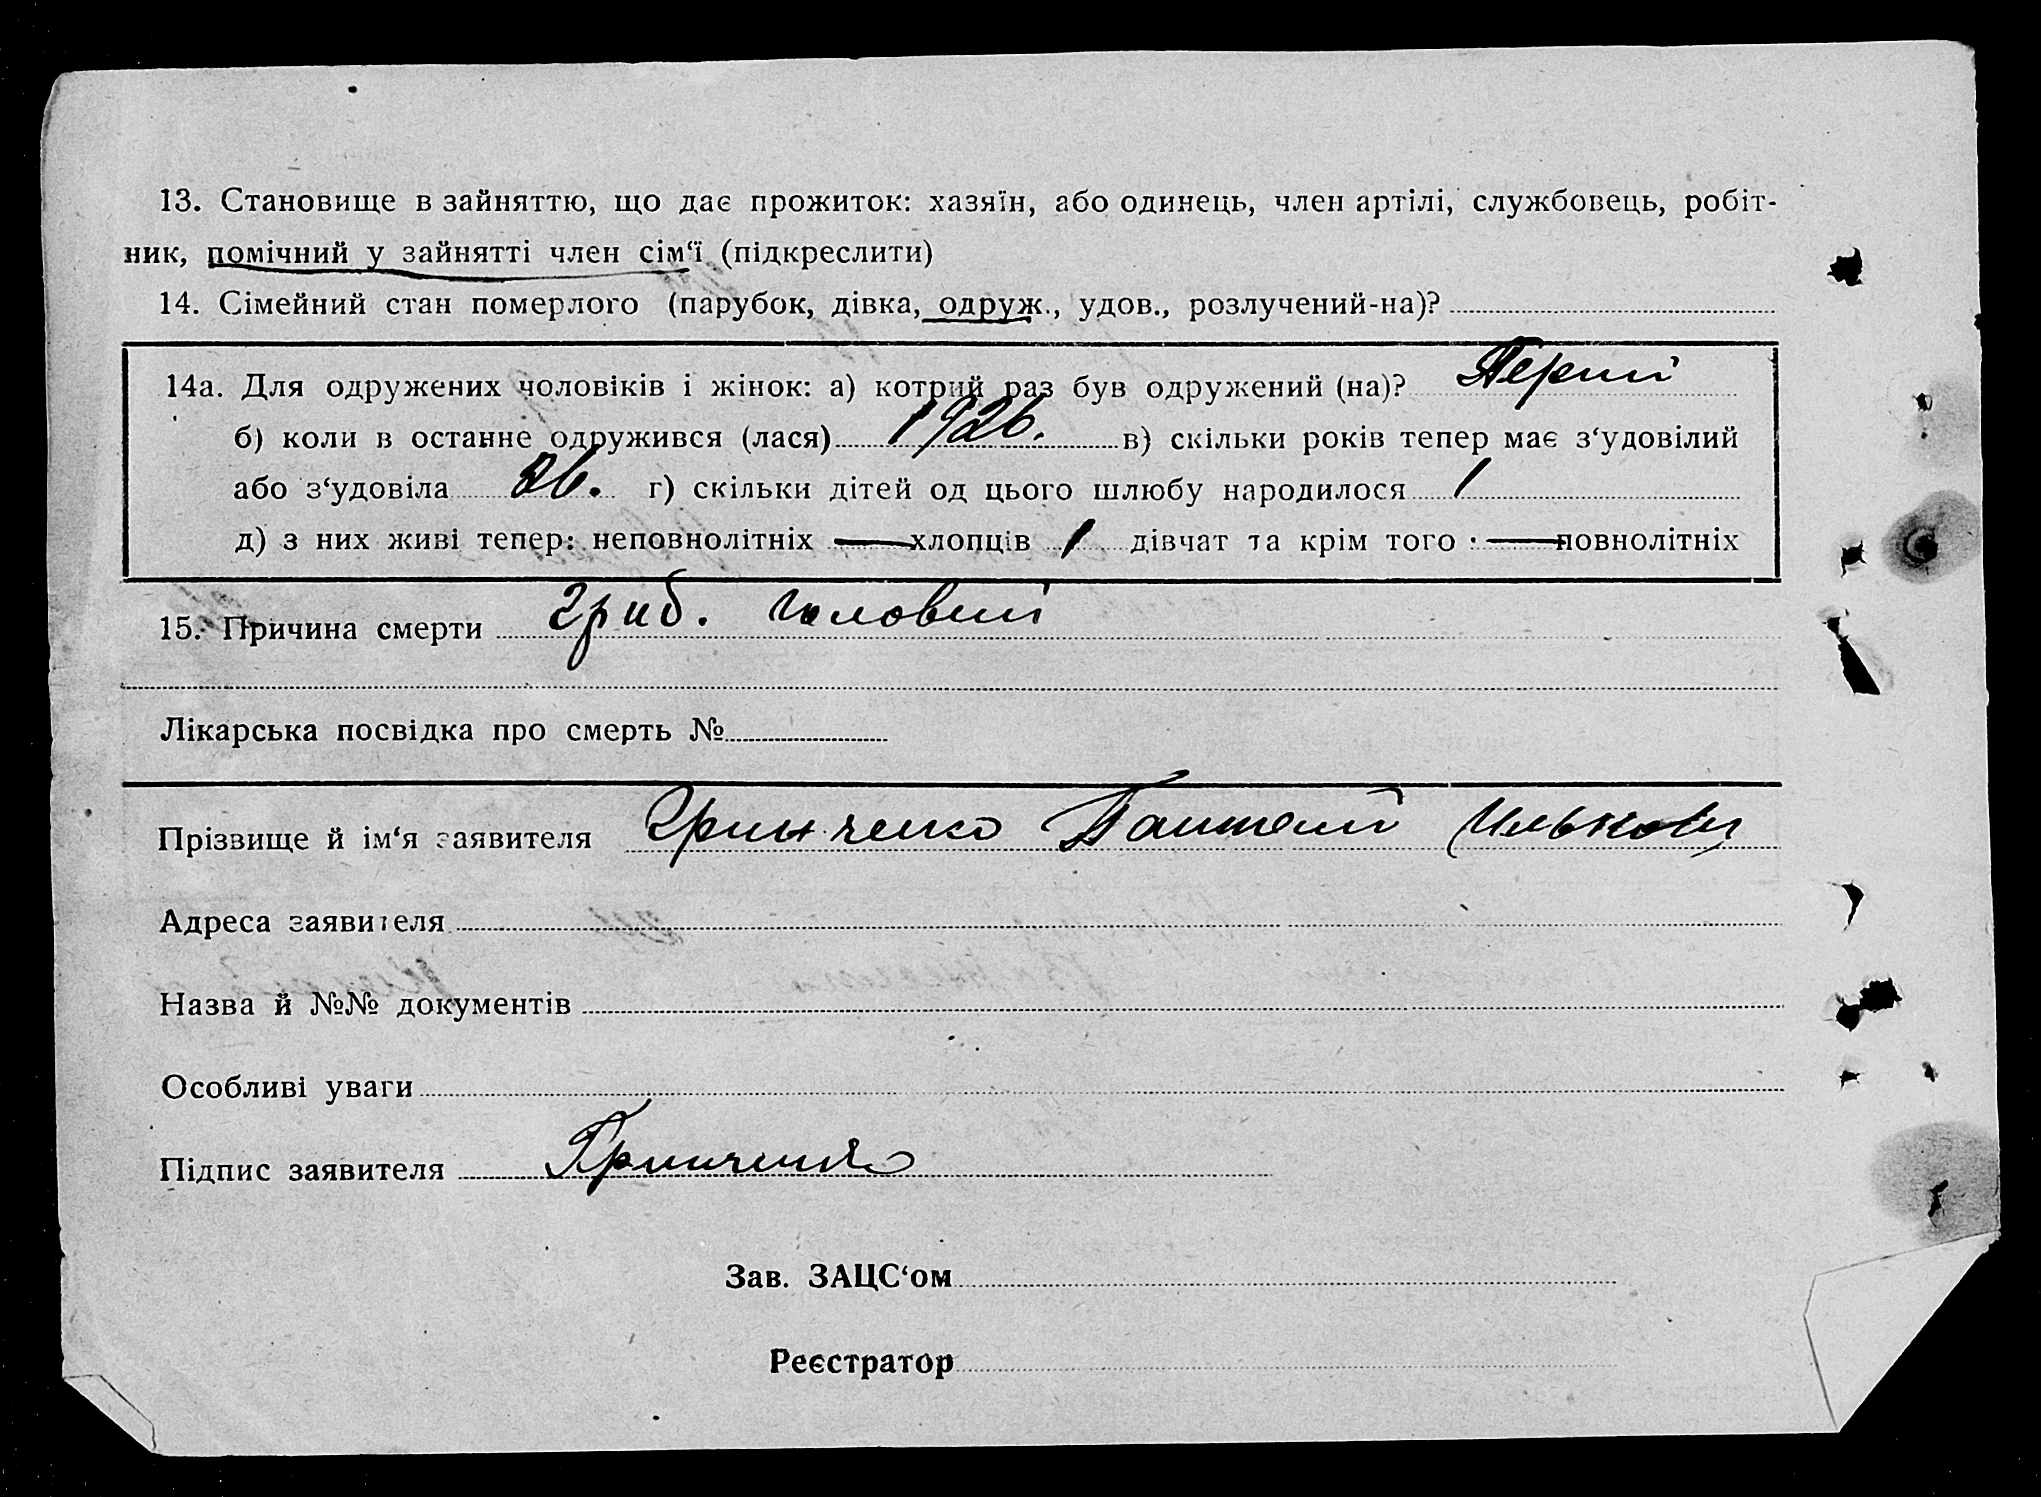 13. Становище в зайняттю, що дає прожиток: хазяїн, або одинець, член артілі, службовець, робіт-
ник, помічний у зайнятті член сім‘ї (підкреслити)
14. Сімейний стан померлого (парубок, дівка, одруж., удов., розлучений-на)?
14а. Для одружених чоловіків і жінок: а) котрий раз був одружений (на)? Перший
б) коли в останнє одружився (лася) 1926. в) скільки років тепер має з‘удовілий
або з‘удовіла 26. г) скільки дітей од цього шлюбу народилося 1
д) з них живі тепер: неповнолітніх — хлопців 1 дівчат та крім того : — повнолітніх
15. Причина смерти гриб. головний
Лікарська посвідка про смерть №
Прізвище й ім‘я заявителя Гринченко Пантелій Илькови
Адреса заявителя
Назва й №№ документів
Особливі уваги
Підпис заявителя Гринченко
Зав. ЗАЦС‘ом
Реєстратор